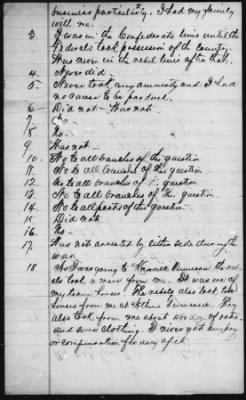 business particularly. I had my family
with me.
3. I was in the Confederate lines until the
Federals took possession of the Country.
Was never in the rebel lines after that.
4. Never did.
5. Never took any amnesty and I had
no cause to be pardoned.
6. Did not - Was not.
7. No -
8. No.
9. Was not -
10. No to all branches of the question
11. No to all branches of this question
12. No to all branches of question
13. No to all branches of this question
14. No to all parts of this question
15. Did not.
16. No -
17. Was not arrested by either side during the
war.
18. As I was going to Knoxville Tennessee the reb
els took a mare from me. It was one of
my team horses. The rebels also took two
horses from me at Athens Tennessee. They
also took from me about doz. of oats
and some clothing. I never got any pay
or compensation for any of it.